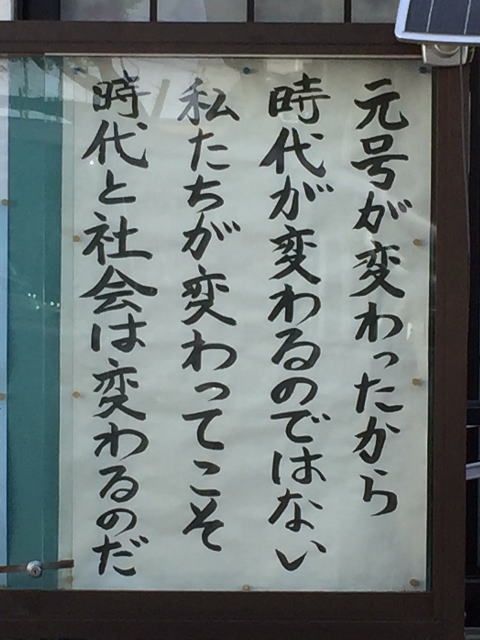 元号が変わったから
時代が変わるのではない
私たちが変わってこそ
時代と社会は変わるのだ